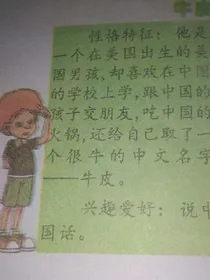 性格特征：他是
一个在美国出生的美
国男孩，却喜欢在中国
的学校上学，跟中国的
孩子交朋友，吃中国的
火锅，还给自己取了一
个很牛的中文名字
——牛皮。
兴趣爱好：说中
国话。